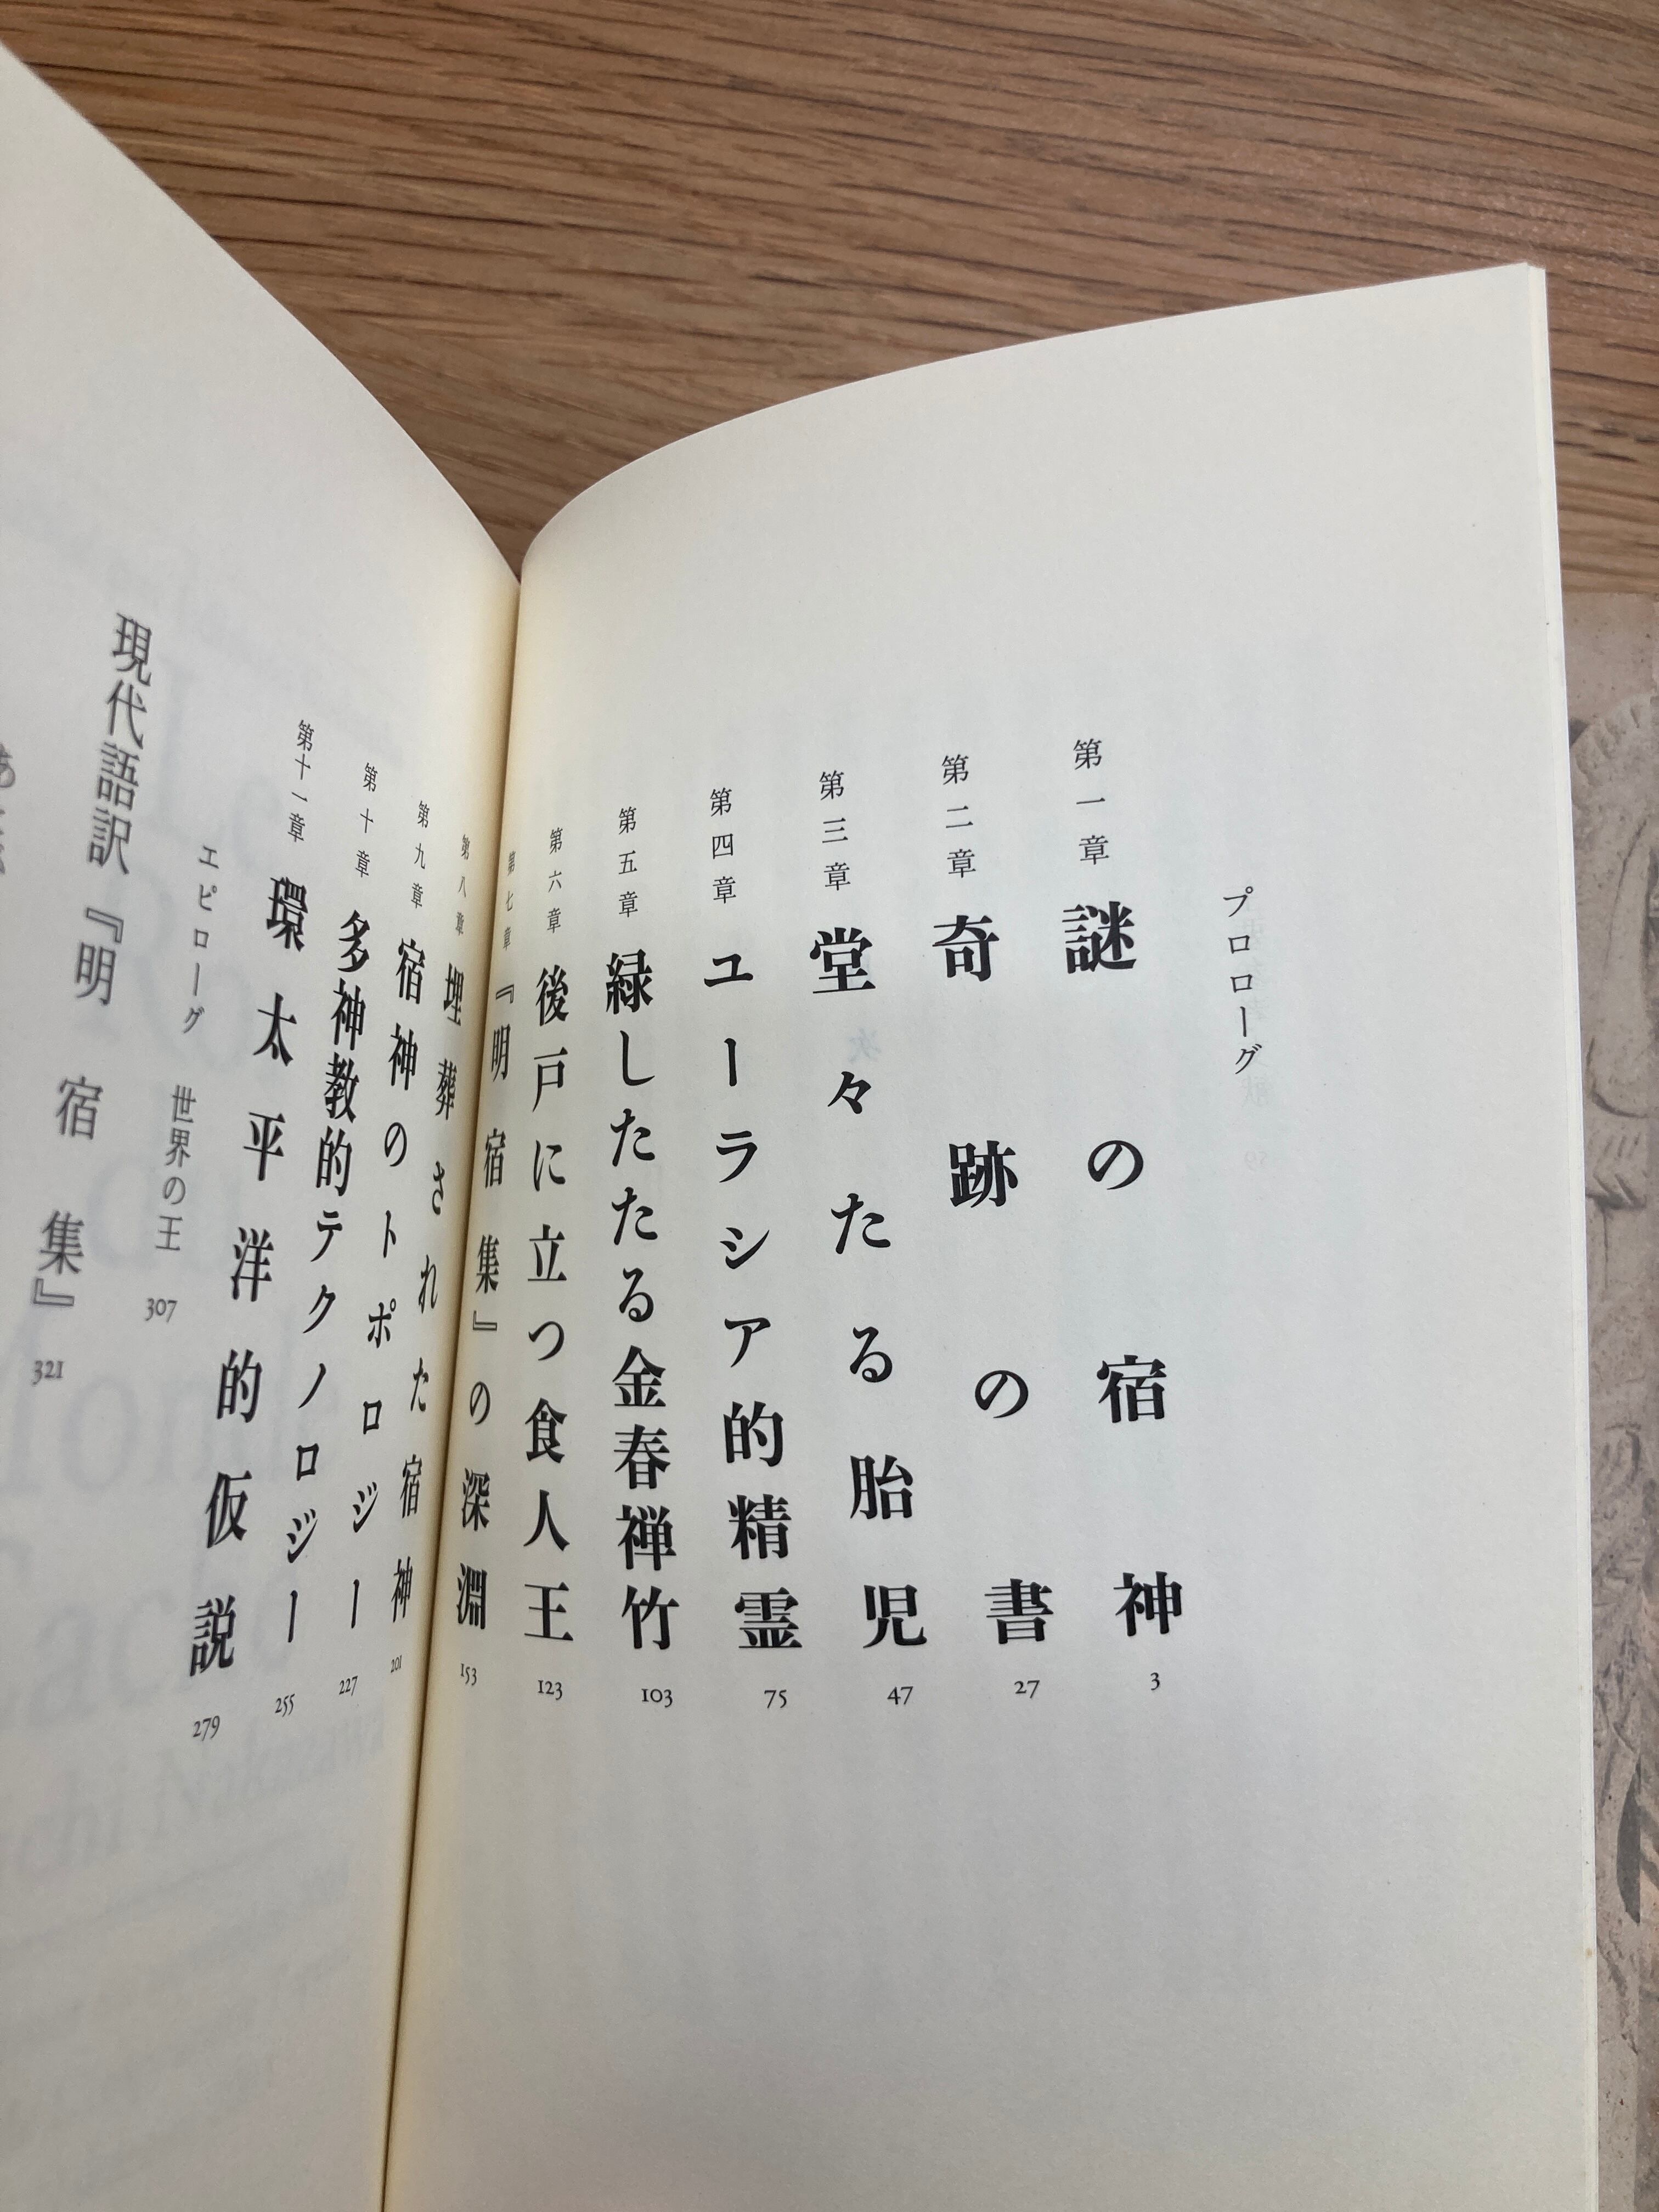 プロローグ
第一章 謎の宿神 3
第二章 奇跡の書 27
第三章 堂々たる胎児 47
第四章 ユーラシア的精霊 75
第五章 緑したたる金春禅竹 103
第六章 後戸に立つ食人王 123
第七章 『明宿集』の深淵 153
第八章 埋葬された宿神 201
第九章 宿神のトポロジー 227
第十章 多神教的テクノロジー 255
第十一章 環太平洋的仮説 279
エピローグ 世界の王 307
現代語訳『明宿集』 321